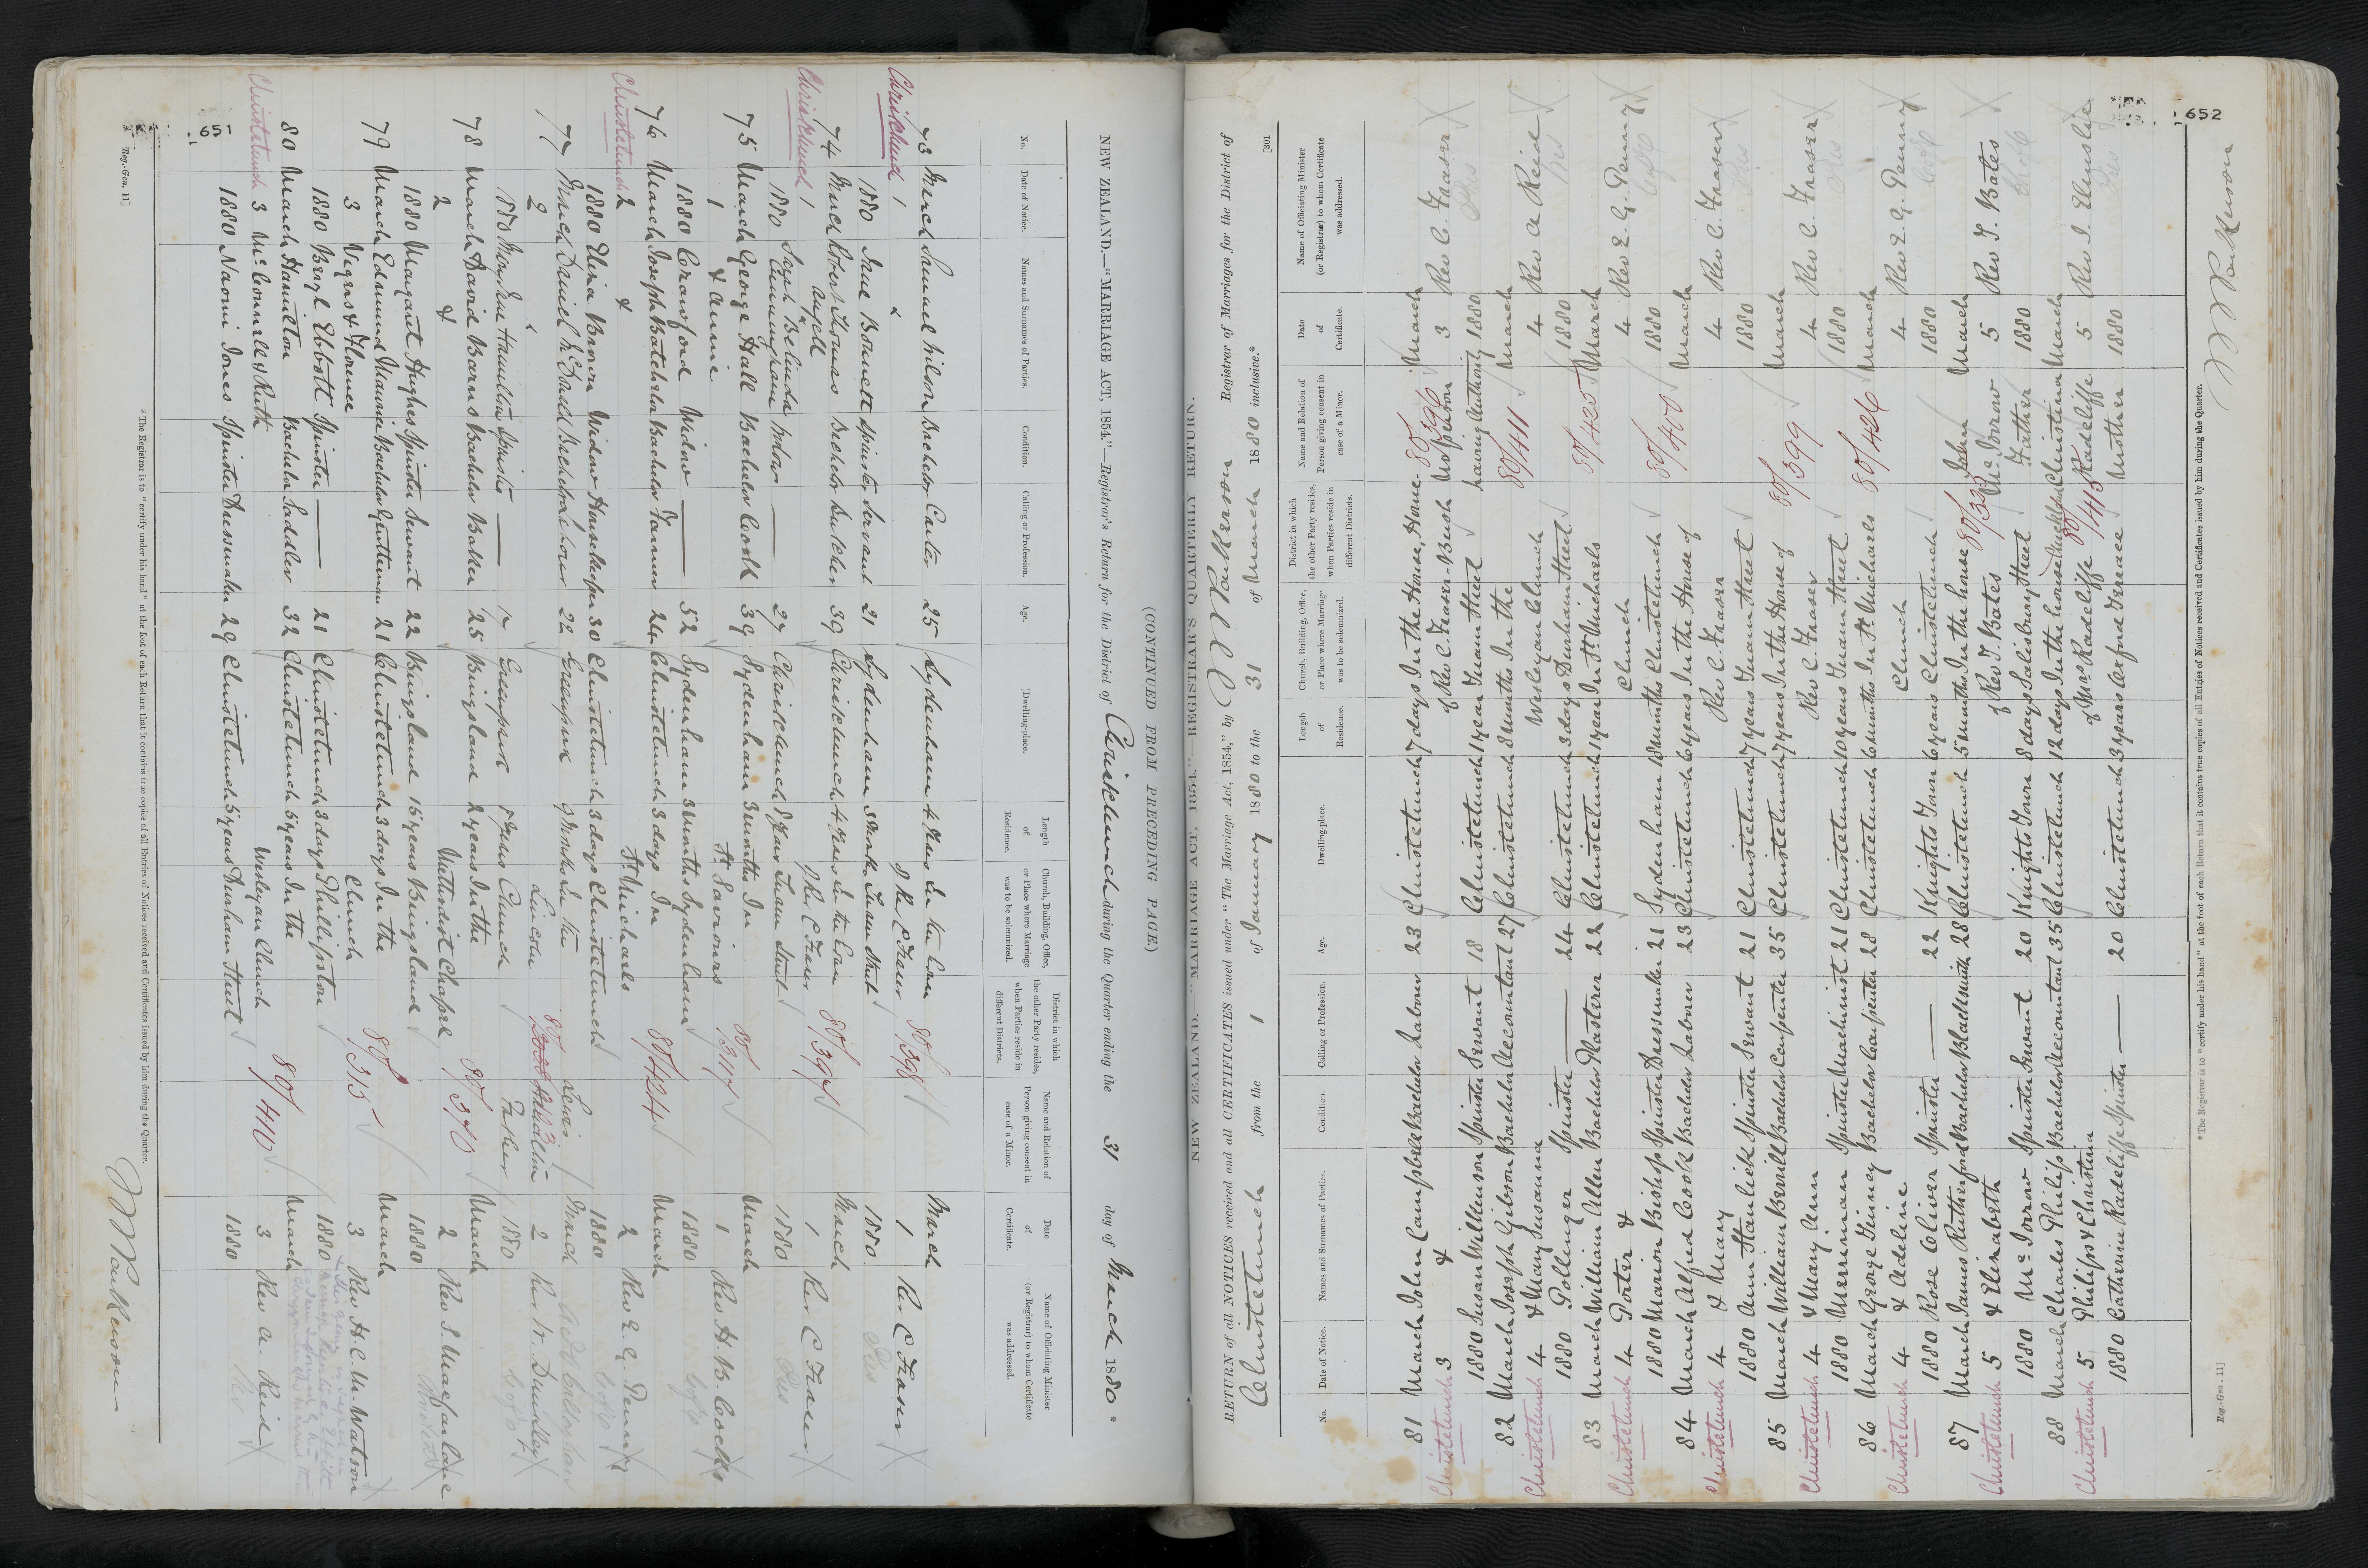 651
(CONTINUED FROM PRECEDING PAGE.)
NEW ZEALAND.—"MARRIAGE ACT, 1854."—Registrar's Return for the District of Christchurch during the Quarter ending the 31 day of March 1880.
No. Date of Notice. Names and Surnames of Parties. Condition. Calling or Profession. Age. Dwelling-place. Length of Residence. Church, Building, Office, or Place where Marriage was to be solemnized. District in which the other Party resides, when Parties reside in different Districts. Name and Relation of Person giving consent in case of a Minor. Date of Certificate. Name of Officiating Minister (or Registrar) to whom Certificate was addressed.
73 March Samuel Wilson Bachelor Carter 25 Sydenham March
Christchurch 1 & of Rev C Fraser 80/398 1 Rev C Fraser
1880 Jane Bonnett Spinster Servant 21 Sydenham Tuam Street 1880 Pres
74 March Robert Thomas Bachelor Butcher 30 Christchurch March
Christchurch 1 Angell of Rev C Fraser 80/397 1 Rev C Fraser
1880 Sarah Belinda Cunningham Widow — 27 Christchurch Tuam Street 1880 Pres
75 March George Hall Bachelor Cook 39 Sydenham 3 months In March
1 & Annie St Saviours 80/317 1 Rev H. B. Cocks
1880 Crawford Widow — 52 Sydenham 3 months Sydenham 1880
76 March Joseph Batchelor Bachelor Farmer 24 Christchurch 3 days In March
Christchurch 2 & St Michaels 80/424 2 Rev E. G. Penny
1880 Eliza Brown Widow Housekeeper 30 Christchurch 3 days Christchurch 1880
77 March Daniel Bachelor Labour 22 Greenpark In the Lewis March
2 & Lincoln 2 Rev W. Dunkley
1880 Hamblin Spinster — 17 Greenpark Church Father 1880
78 March David Barns Bachelor Baker 25 Bingsland 2 years In the March
2 & Methodist Chapel 80/370 2 Rev S. Macfarlane
1880 Margaret Hughes Spinster Servant 22 Bingsland 16 years Bingsland 1880
79 March Edmund Maurice Bachelor Gentleman 21 Christchurch 3 days In the March
3 Vigers & Florence Church 80/315 3 Rev H. C. M. Watson
1880 Bazge Ebbott Spinster — 21 Christchurch 3 days Phillipston 1880
80 March Hamilton Bachelor Saddler 32 Christchurch 5 years In the March
Christchurch 3 McConnell & Ruth Wesleyan Church 80/410 3 Rev A. Reid
1880 Naomi Jones Spinster Dressmaker 29 Christchurch 5 years Durham Street 1880
*The Registrar is to "certify under his hand" at the foot of each Return that it contains true copies of all Entries of Notices received and Certificates issued by him during the Quarter.
Reg.-Gen. 11]
652
NEW ZEALAND.—"MARRIAGE ACT, 1854."—REGISTRAR'S QUARTERLY RETURN.
[301
RETURN of all NOTICES received and all CERTIFICATES issued under "The Marriage Act, 1854," by Registrar of Marriages for the District of
Christchurch from the 1 of January 1880 to the 31 of March 1880 inclusive.*
No. Date of Notice. Names and Surnames of Parties. Condition. Calling or Profession. Age. Dwelling-place. Length of Residence. Church, Building, Office, or Place where Marriage was to be solemnized. District in which the other Party resides, when Parties reside in different Districts. Name and Relation of Person giving consent in case of a Minor. Date of Certificate. Name of Officiating Minister (or Registrar) to whom Certificate was addressed.
81 March John Campbell Bachelor Labour 23 Christchurch 7 days In the House, Home 80/396 March
Christchurch 3 & of Rev C. Fraser-Bush No person 3 Rev C. Fraser
1880 Susan Wilkinson Spinster Servant 18 Christchurch 1 year Tuam Street having Authority 1880 Pres
82 March Joseph Gibson Bachelor Accountant 27 Christchurch 8 months In the March
Christchurch 4 & Mary Susanna Wesleyan Church 80/411 4 Rev A Reid
1880 Pollinger Spinster — 24 Christchurch 3 days Durham Street 1880
83 March William Allen Bachelor Plasterer 22 Christchurch 1 year In St Michaels March
Christchurch 4 Porter & Church 80/425 4 Rev E. G. Penny
1880 Marion Bishop Spinster Dressmaker 21 Sydenham 18 months Christchurch 1880
84 March Alfred Cook Bachelor Labourer 23 Christchurch 6 years In the House of March
Christchurch 4 & Mary Rev C. Fraser 80/400 4 Rev C. Fraser
1880 Ann Stanlick Spinster Servant 21 Christchurch 7 years Tuam Street 1880 Pres
85 March William Bevill Bachelor Carpenter 35 Christchurch 7 years In the House of March
Christchurch 4 & Mary Ann Rev C. Fraser 80/399 4 Rev C. Fraser
1880 Merriman Spinster Machinist 21 Christchurch 10 years Tuam Street 1880 Pres
86 March George Finney Bachelor Carpenter 28 Christchurch 6 months In St Michaels March
Christchurch 4 & Adeline Church 80/426 4 Rev E. G. Penny
1880 Rose Cliver Spinster — 22 Knights Town 6 years Christchurch 1880
87 March James Rutherford Bachelor Blacksmith 28 Christchurch 5 months In the house John March
Christchurch 5 & Elizabeth of Rev J. Bates McIorrow 5 Rev J. Bates
1880 McIorrow Spinster Servant 20 Knights Town 8 days Salisbury Street Father 1880
88 March Charles Philip Bachelor Accountant 35 Christchurch 12 days In the house Christina March
Christchurch 5 Philips & Christina of Mrs Radcliffe 80/415 Radcliffe 5 Rev J. Elmslie
1880 Catherine Radcliffe Spinster — 20 Christchurch 3 years Oxford Terrace Mother 1880 Pres
*The Registrar is to "certify under his hand" at the foot of each Return that it contains true copies of all Entries of Notices received and Certificates issued by him during the Quarter.
Reg.-Gen. 11]